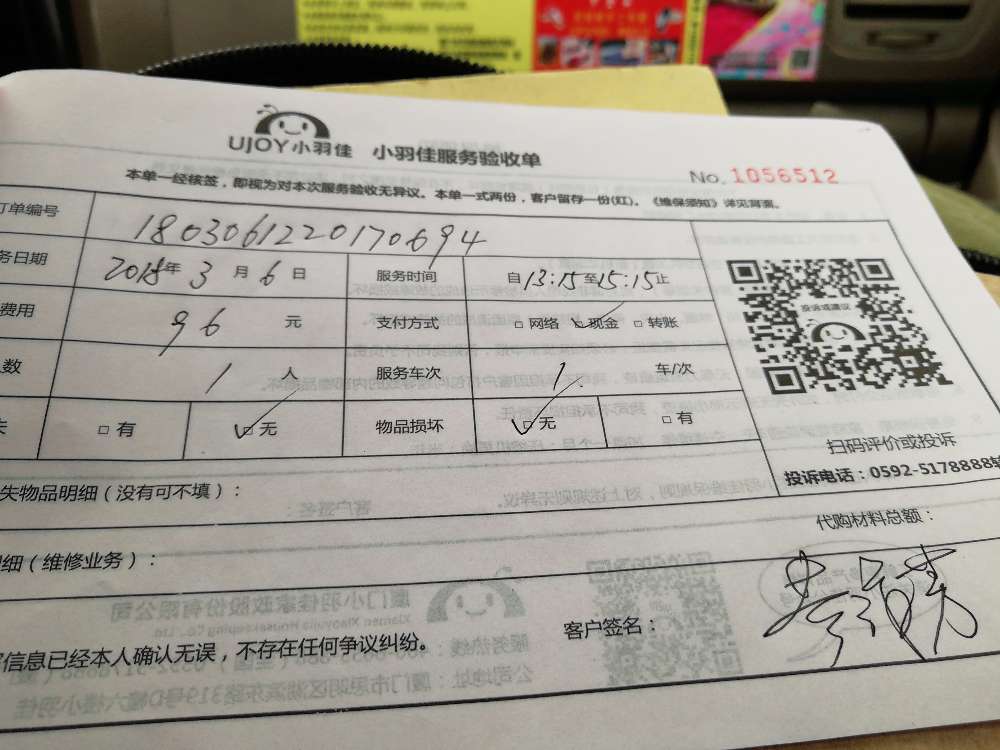 UJOY小羽佳 小羽佳服务验收单
No. 1056512
本单一经核签，即视为对本次服务验收无异议。本单一式两份，客户留存一份(红)。《维保须知》详见背面。
订单编号 1803061220170694
务日期 2018年3月6日 服务时间 自13:15至15:15止
费用 96 元 支付方式 □ 网络 ☑ 现金 □ 转账
人数 1 人 服务车次 1 车/次
失 □ 有 ☑ 无 物品损坏 ☑ 无 □ 有
投诉或建议
扫码评价或投诉
投诉电话：0592-5178888转
失物品明细（没有可不填）：
代购材料总额：
明细（维修业务）：
客户签名：
信息已经本人确认无误，不存在任何争议纠纷。